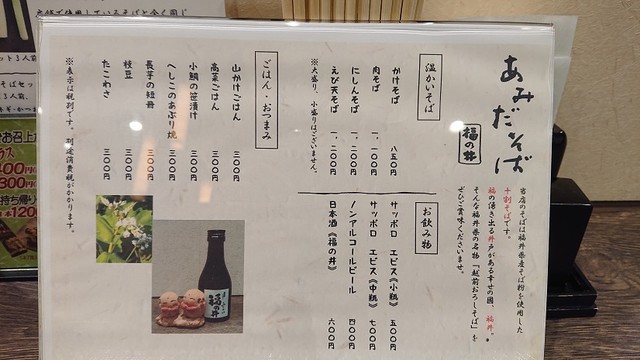 あみだそば
福の井
当店のそばは福井県産そば粉を使用した
十割そばです。
福の湧き出る井戸がある幸せの国、福井。
そんな福井県の名物「越前おろしそば」を
ぜひご賞味くださいませ。
温かいそば
かけそば 八五〇円
肉そば 一、一〇〇円
にしんそば 一、二〇〇円
えび天そば 一、二〇〇円
※大盛り、小盛りはございません。
お飲み物
サッポロ ヱビス《小瓶》 五〇〇円
サッポロ ヱビス《中瓶》 七〇〇円
ノンアルコールビール 四〇〇円
日本酒《福の井》 六〇〇円
ごはん・おつまみ
山かけごはん 三〇〇円
高菜ごはん 三〇〇円
小鯛の笹漬け 三〇〇円
へしこのあぶり焼 三〇〇円
長芋の短冊 三〇〇円
枝豆 三〇〇円
たこわさ 三〇〇円
※表示は税別です。別途消費税がかかります。
福の井